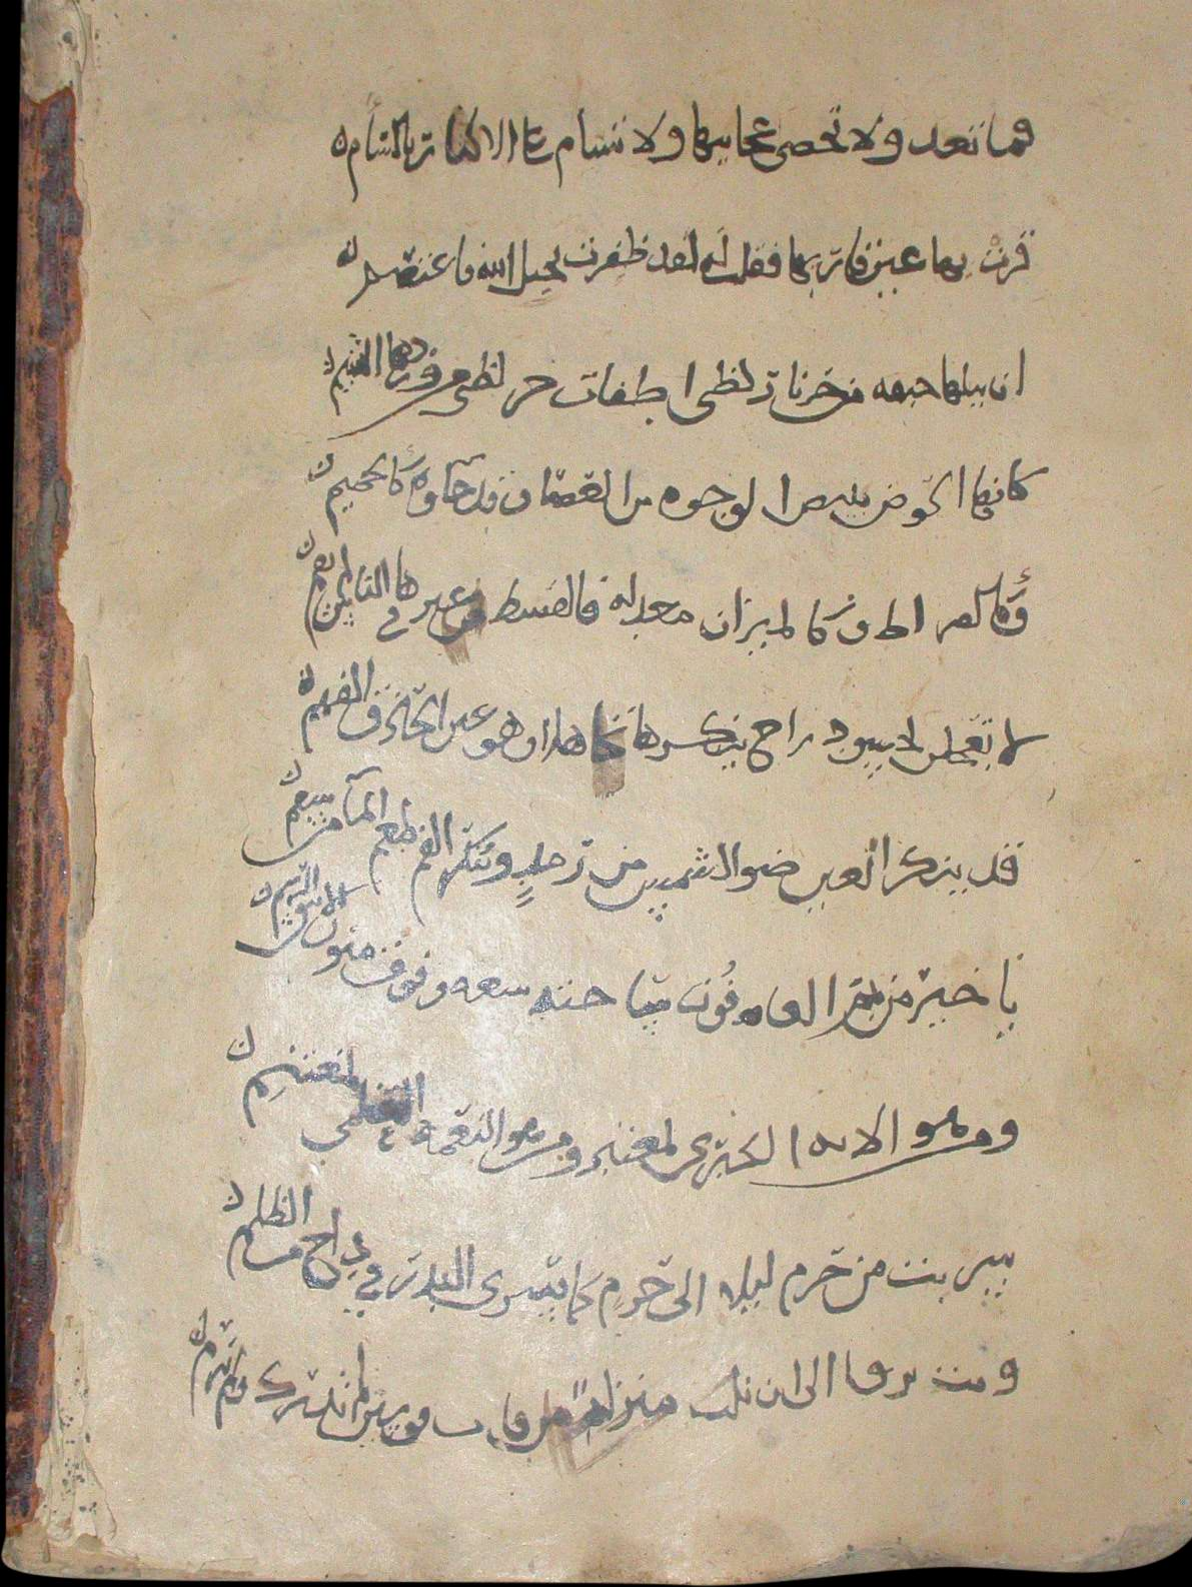 فما تعد ولا تحصى عجايبها ولا تسام على الاكثار بالسأم
قرت بها عين قاريها فقلت له لقد ظفرت بحبل الله فاعتصم
ان تتلها خيفه من حر نار لظى اطفات حر لظى من وردها الشبم
كانها الحوض تبيض الوجوه من العصاة وقد جاوه كالحمم
وكالصراط وكالميزان معدلة فالقسط من غيرها في الناس لم يقم
لا تعجبن لحسود راح ينكرها تجاهلا وهو عين الحاذق الفهم
قد ينكر العين ضو الشمس من رمد وينكر الفم طعم المآ من سقم
يا خير من يمم العافون ساحته سعيا وفوق متون الاينق الرسم
ومن هو الايه الكبرى لمعتبر ومن هو النعمة العظمى لمغتنم
سريت من حرم ليلا الى حرم كما يسرى البدر في داج من الظلم
وبت ترقا الى ان نلت منزلة من قاب قوسين لم تدرك ولم ترم